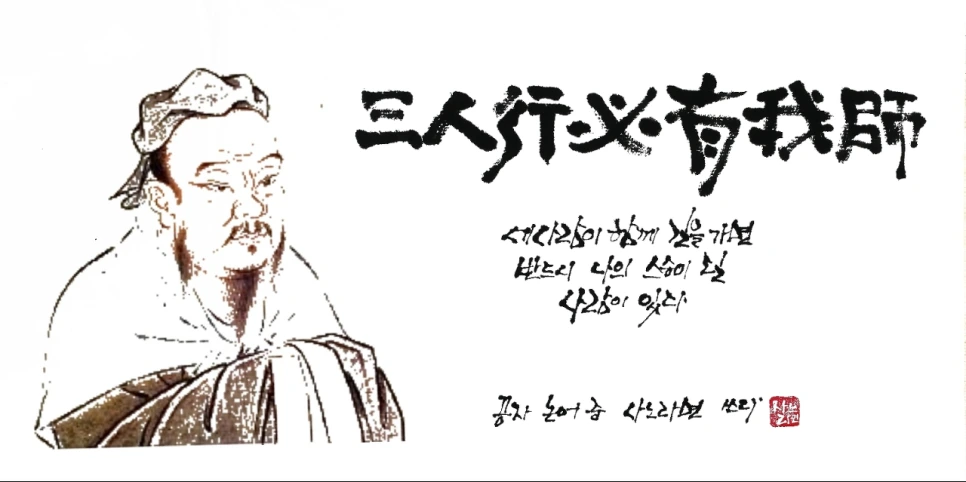 三人行必有我師
세사람이 함께 길을 가면
반드시 나의 스승이 될
사람이 있다
공자 논어 중 사노라면 쓰다